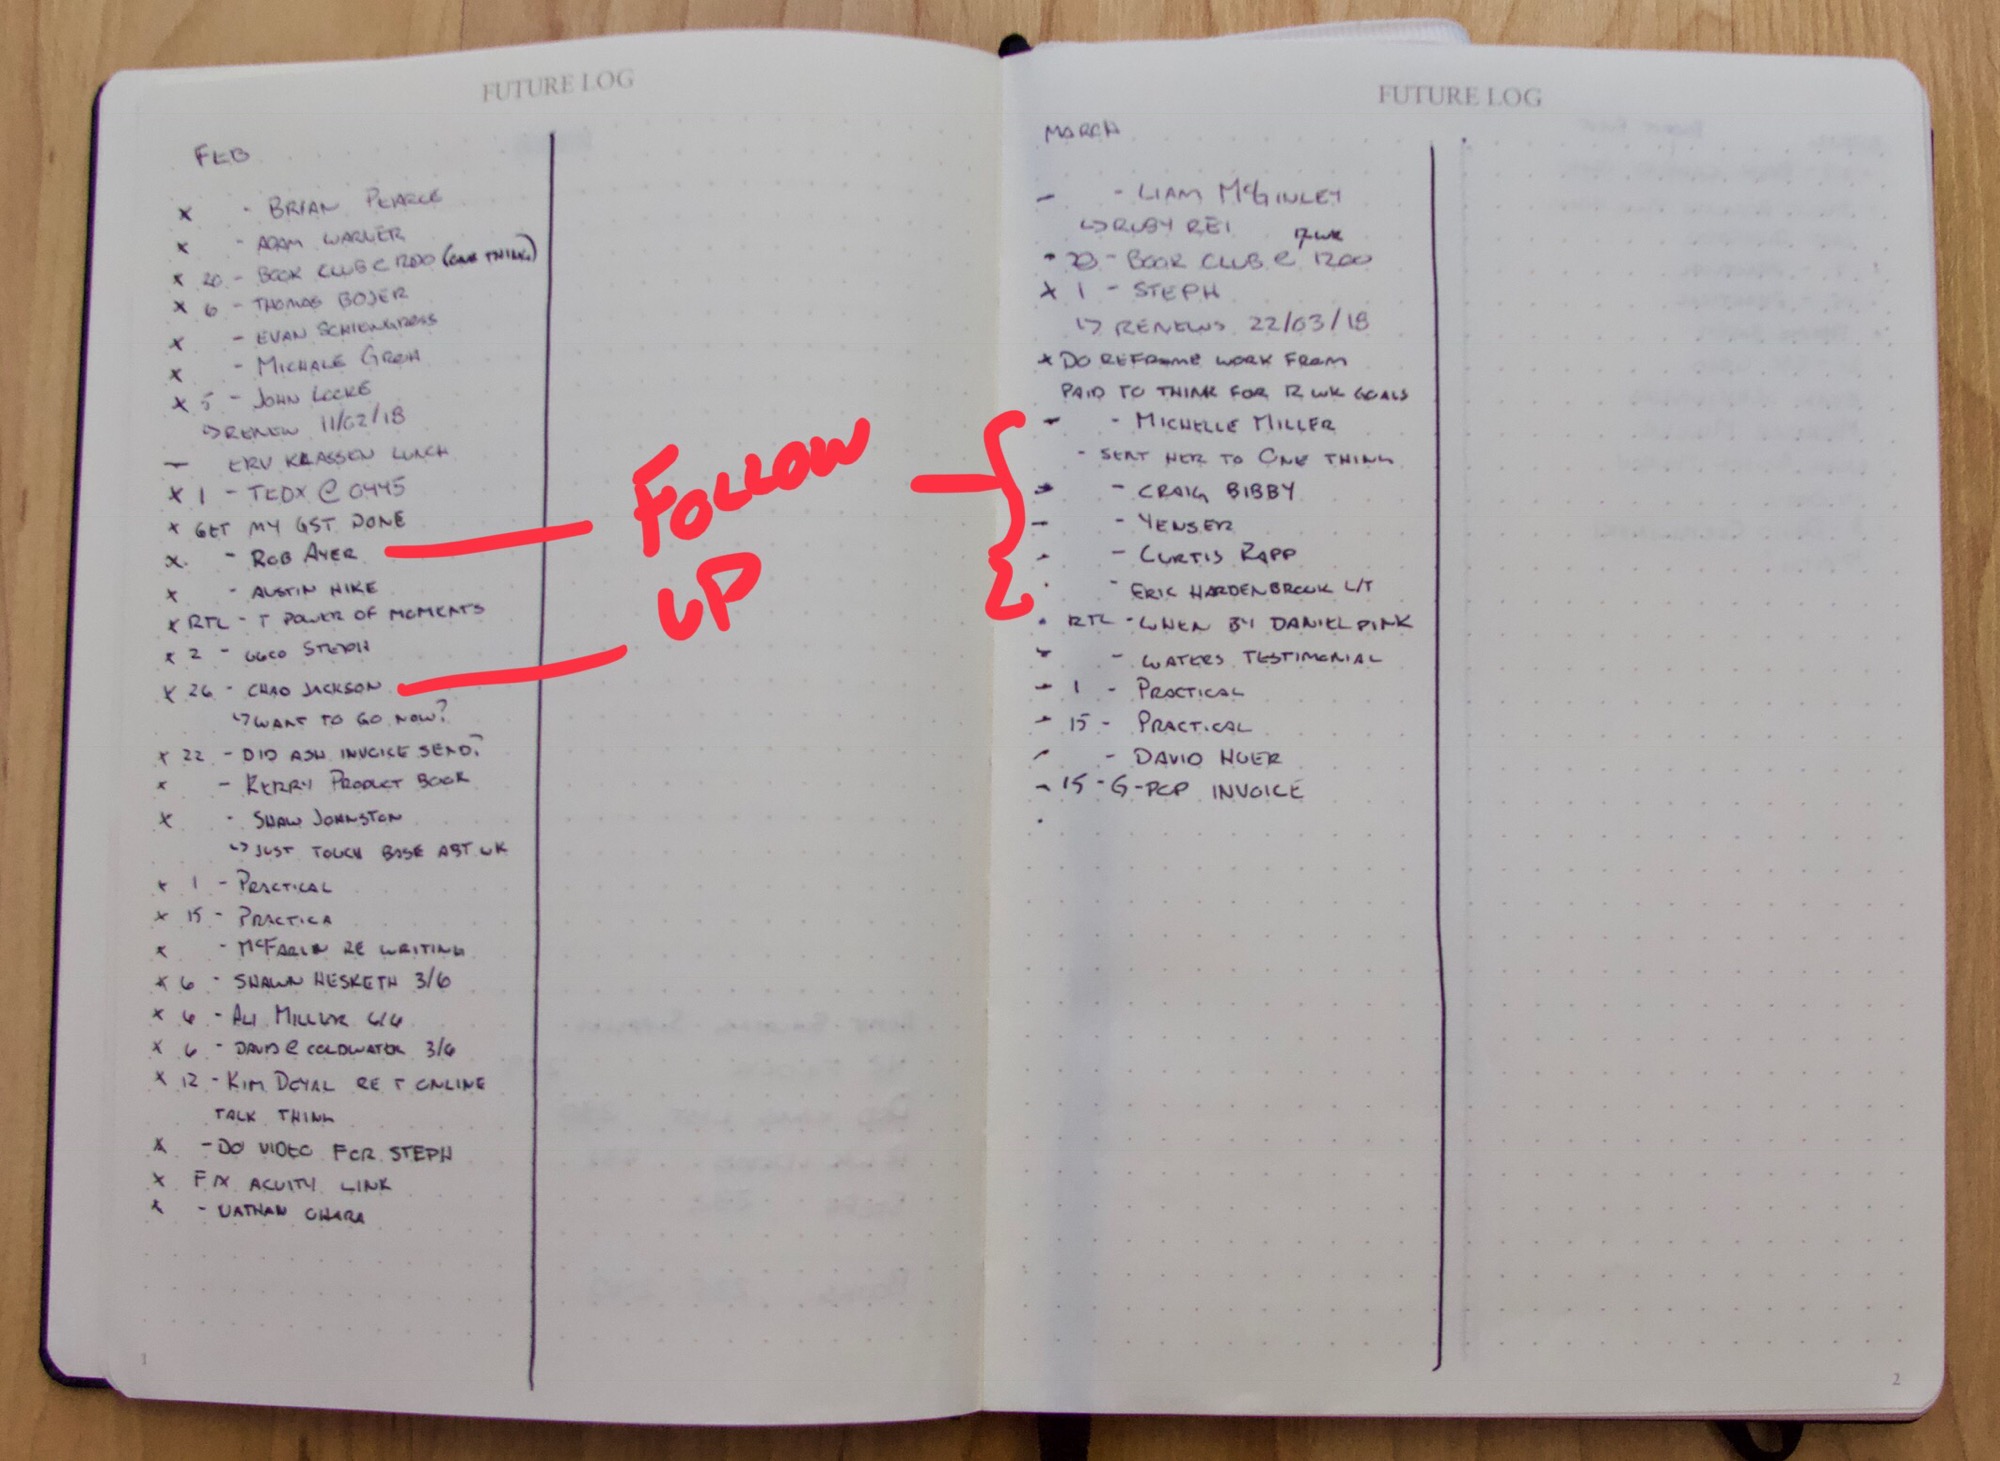 FUTURE LOG
FEB
x - BRIAN PEARCE
x - ADAM WARNER
x 20 - BOOK CLUB @ 1200 (ONE THING)
x 6 - THOMAS BOJER
x - EVAN
x - MICHALE GROH
x 5 - JOHN LOCKE
↳ RENEW 11/02/18
— ERV KLASSEN LUNCH
x 1 - TEDX @ 0445
x GET MY GST DONE
x - ROB AYER
x - AUSTIN HIKE
x RTL - T POWER OF MOMENTS
x 2 - STEPH
x 26 - CHAD JACKSON
↳ WANT TO GO NOW?
x 22 - DID ASH INVOICE SEND?
x - KERRY PRODUCT BOOK
x - SHAW JOHNSTON
↳ JUST TOUCH BASE ABT WK
x 1 - PRACTICAL
x 15 - PRACTICA
x - McFARLN RE WRITING
x 6 - SHAWN HESKETH 3/6
x 6 - ALI MILLER 6/6
x 6 - DAVID @ COLDWATER 3/6
x 12 - KIM DOYAL RE T ONLINE
TALK THING
x - DO VIDEO FOR STEPH
x FIX ACUITY LINK
x - NATHAN OHARA
1
FOLLOW
UP
FUTURE LOG
MARCH
- - LIAM McGINLEY
↳ RUBY REI
12 WK
• 20 - BOOK CLUB @ 1200
x 1 - STEPH
↳ RENEWS 22/03/18
x DO REFRAME WORK FROM
PAID TO THINK FOR 12 WK GOALS
- - MICHELLE MILLER
- SENT HER TO ONE THING
- - CRAIG BIBBY
- - YENSER
- - CURTIS RAPP
• - ERIC HARDENBROOK L/T
• RTL - WHEN BY DANIEL PINK
- - WATERS TESTIMONIAL
- 1 - PRACTICAL
- 15 - PRACTICAL
- - DAVID HUER
- 15 - G-PCP INVOICE
•
2